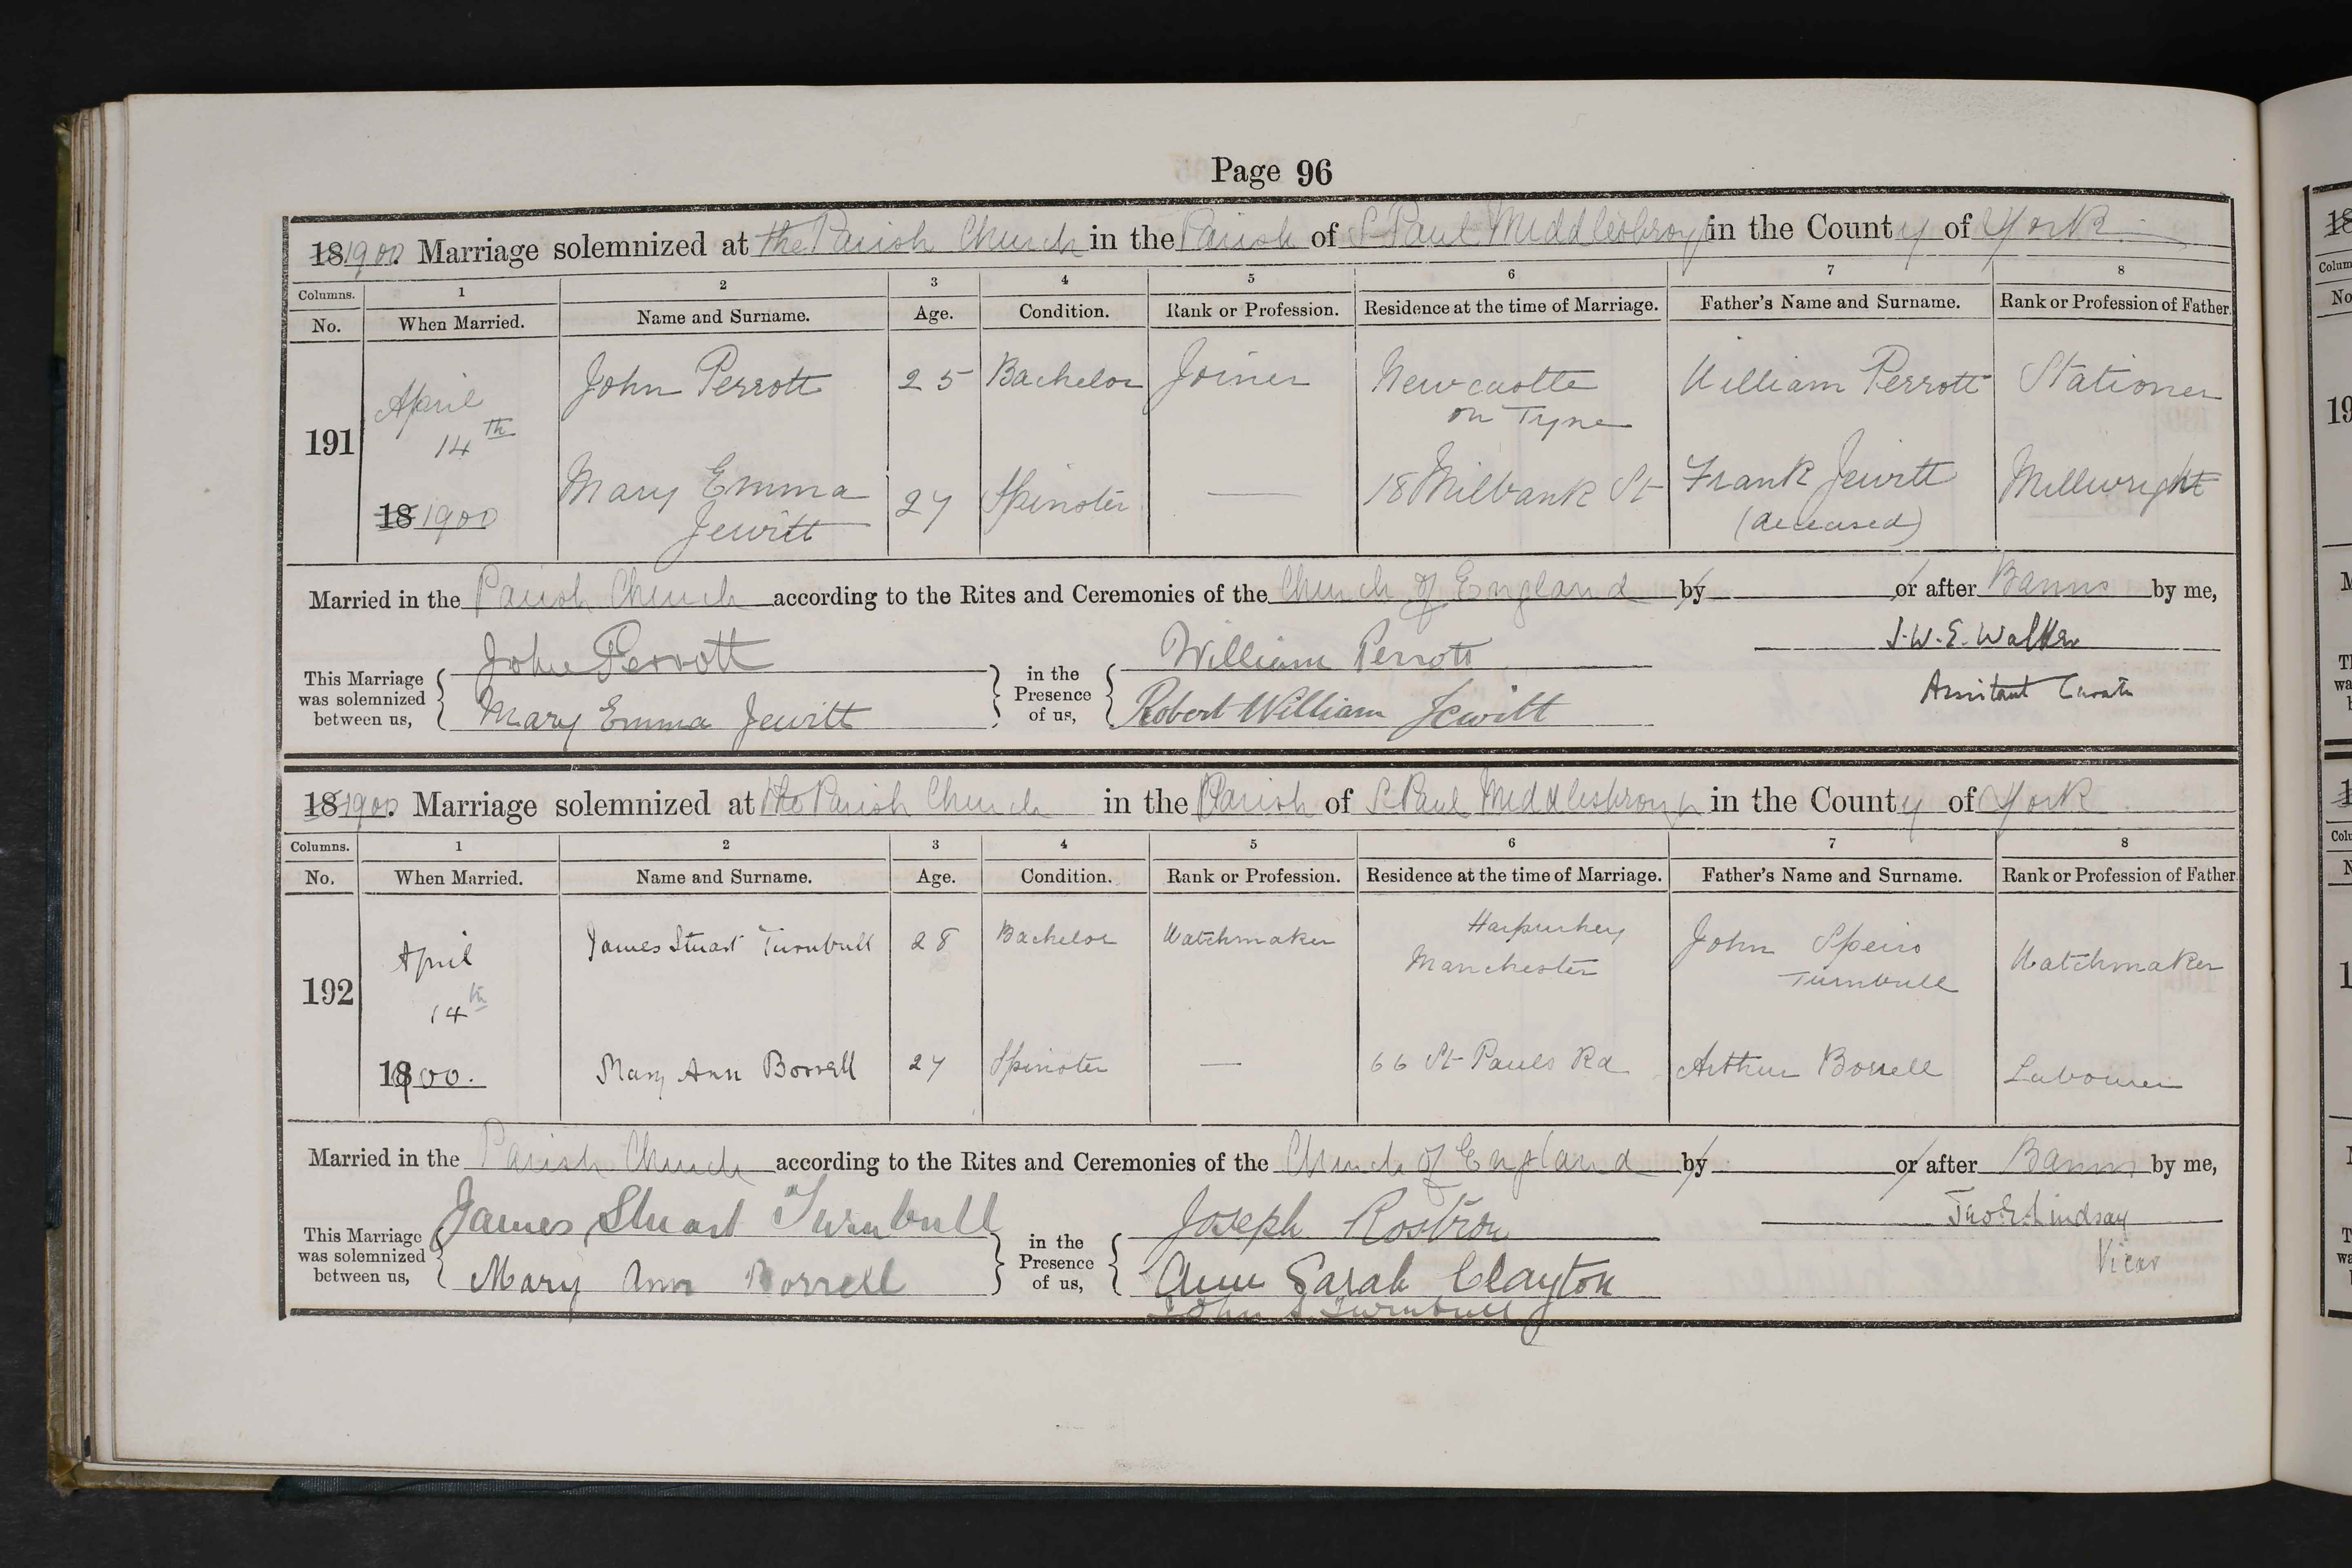 Page 96
18 1900. Marriage solemnized at the Parish Church in the Parish of St Paul Middlesbroug in the County of York
Columns. 1 2 3 4 5 6 7 8
No. When Married. Name and Surname. Age. Condition. Rank or Profession. Residence at the time of Marriage. Father's Name and Surname. Rank or Profession of Father.
191 April 14th 18 1900
John Perrott 25 Bachelor Joiner Newcastle on Tyne William Perrott Stationer
Mary Emma Jewitt 27 Spinster — 18 Milbank St Frank Jewitt (deceased) Millwright
Married in the Parish Church according to the Rites and Ceremonies of the Church of England by or after Banns by me,
This Marriage was solemnized between us, { John Perrott } in the Presence of us, { William Perrott J.W.E. Walker
Mary Emma Jewitt Robert William Jewitt Assistant Curate
18 1900. Marriage solemnized at the Parish Church in the Parish of St Paul Middlesbrough in the County of York
Columns. 1 2 3 4 5 6 7 8
No. When Married. Name and Surname. Age. Condition. Rank or Profession. Residence at the time of Marriage. Father's Name and Surname. Rank or Profession of Father.
192 April 14th 1900.
James Stuart Turnbull 28 Bachelor Watchmaker Harpurhey Manchester John Speirs Turnbull Watchmaker
Mary Ann Borrell 27 Spinster — 66 St Pauls Rd Arthur Borrell Labourer
Married in the Parish Church according to the Rites and Ceremonies of the Church of England by or after Banns by me,
This Marriage was solemnized between us, { James Stuart Turnbull } in the Presence of us, { Joseph Rostron Lindsay
Mary Ann Borrell Ann Sarah Clayton Vicar
John S Turnbull